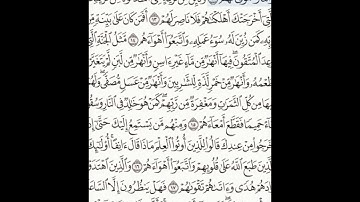 تِىٓ أَخْرَجَتْكَ أَهْلَكْنَٰهُمْ فَلَا نَاصِرَ لَهُمْ ١٣ أَفَمَن كَانَ عَلَىٰ بَيِّنَةٍ
بِّهِۦ كَمَن زُيِّنَ لَهُۥ سُوٓءُ عَمَلِهِۦ وَٱتَّبَعُوٓا۟ أَهْوَآءَهُم ١٤ مَّثَلُ ٱلْجَنَّةِ ٱلَّتِى
عِدَ ٱلْمُتَّقُونَ فِيهَآ أَنْهَٰرٌ مِّن مَّآءٍ غَيْرِ ءَاسِنٍ وَأَنْهَٰرٌ مِّن لَّبَنٍ لَّمْ يَتَغَيَّرْ
طَعْمُهُۥ وَأَنْهَٰرٌ مِّنْ خَمْرٍ لَّذَّةٍ لِّلشَّٰرِبِينَ وَأَنْهَٰرٌ مِّنْ عَسَلٍ مُّصَفًّى وَلَهُمْ
هَا مِن كُلِّ ٱلثَّمَرَٰتِ وَمَغْفِرَةٌ مِّن رَّبِّهِمْ كَمَنْ هُوَ خَٰلِدٌ فِى ٱلنَّارِ وَسُقُوا۟
آءً حَمِيمًا فَقَطَّعَ أَمْعَآءَهُمْ ١٥ وَمِنْهُم مَّن يَسْتَمِعُ إِلَيْكَ حَتَّىٰٓ إِذَا
خَرَجُوا۟ مِنْ عِندِكَ قَالُوا۟ لِلَّذِينَ أُوتُوا۟ ٱلْعِلْمَ مَاذَا قَالَ ءَانِفًا أُو۟لَٰٓئِكَ
ذِينَ طَبَعَ ٱللَّهُ عَلَىٰ قُلُوبِهِمْ وَٱتَّبَعُوٓا۟ أَهْوَآءَهُمْ ١٦ وَٱلَّذِينَ ٱهْتَدَوْا۟
ادَهُمْ هُدًى وَءَاتَىٰهُمْ تَقْوَىٰهُمْ ١٧ فَهَلْ يَنظُرُونَ إِلَّا ٱلسَّاعَةَ